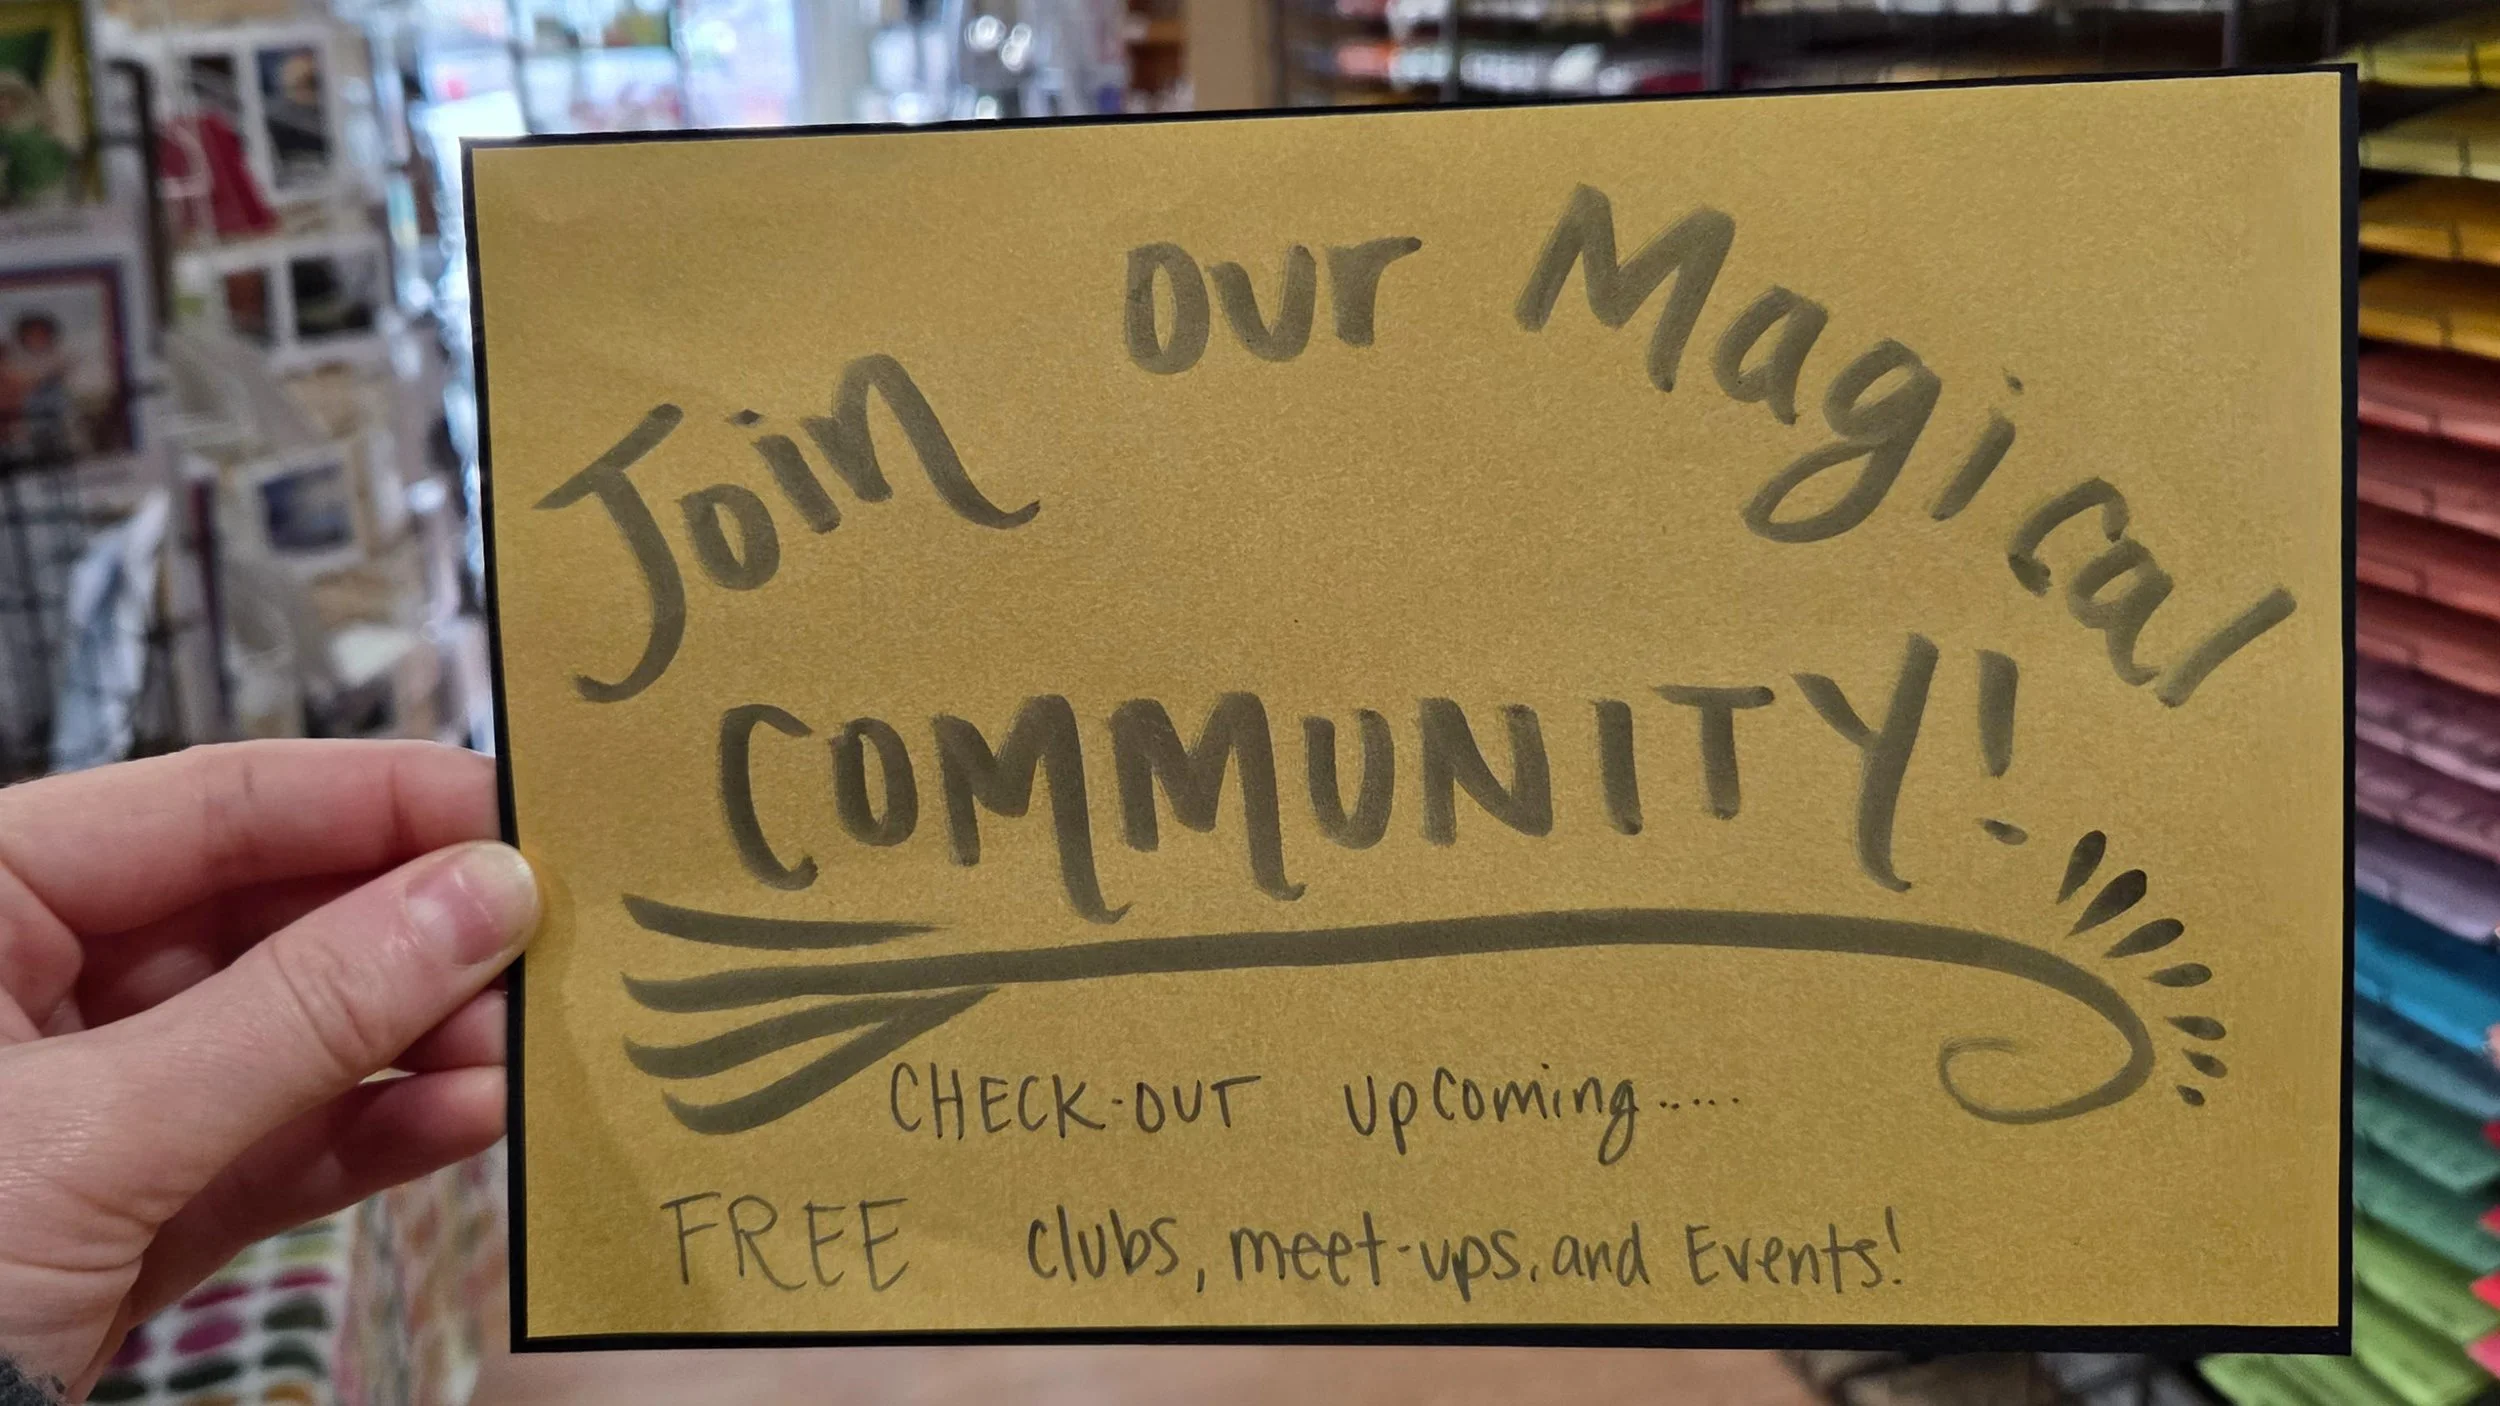 Join our Magical
COMMUNITY!
CHECK-OUT upcoming.....
FREE clubs, meet-ups, and Events!